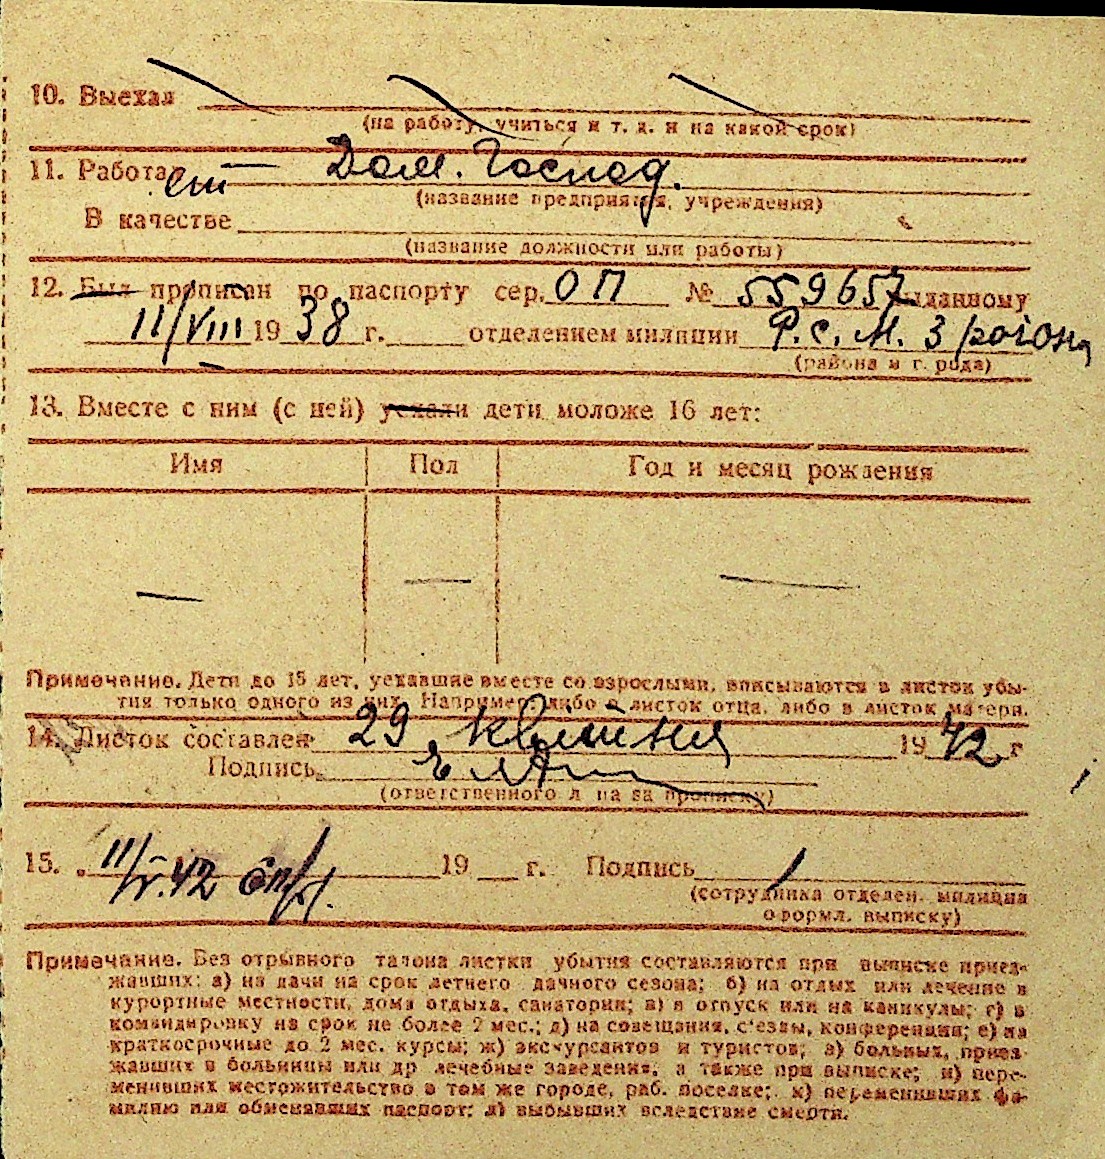 10. Выехал
(на работу, учиться и т. д. и на какой срок)
11. Работает — Дом. Господ.
(название предприятия, учреждения)
В качестве
(название должности или работы)
12. Был прописан по паспорту сер. ОП № 559657 выданному
11/VIII 1938 г. отделением милиции Р.С.М. 3 района
(района и города)
13. Вместе с ним (с ней) уехали дети моложе 16 лет:
Имя Пол Год и месяц рождения
— — —
Примечание. Дети до 15 лет, уехавшие вместе со взрослыми, вписываются в листок убы-
тия только одного из них. Например: либо в листок отца, либо в листок матери.
14. Листок составлен 29 квітня 1942 г
Подпись
(ответственного лица за прописку)
15. 11/V.42 19 г. Подпись
(сотрудника отделен. милиции
оформл. выписку)
Примечание. Без отрывного талона листки убытия составляются при выписке приез-
жавших: а) на дачи на срок летнего дачного сезона; б) на отдых или лечение в
курортные местности, дома отдыха, санатории; в) в отпуск или на каникулы; г) в
командировку на срок не более 2 мес.; д) на совещания, с'езды, конференции; е) на
краткосрочные до 2 мес. курсы; ж) экскурсантов и туристов; з) больных, приез-
жавших в больницы или др лечебные заведения, а также при выписке; и) пере-
менивших местожительство в том же городе, раб. поселке; к) переменивших фа-
милию или обменявших паспорт; л) выбывших вследствие смерти.